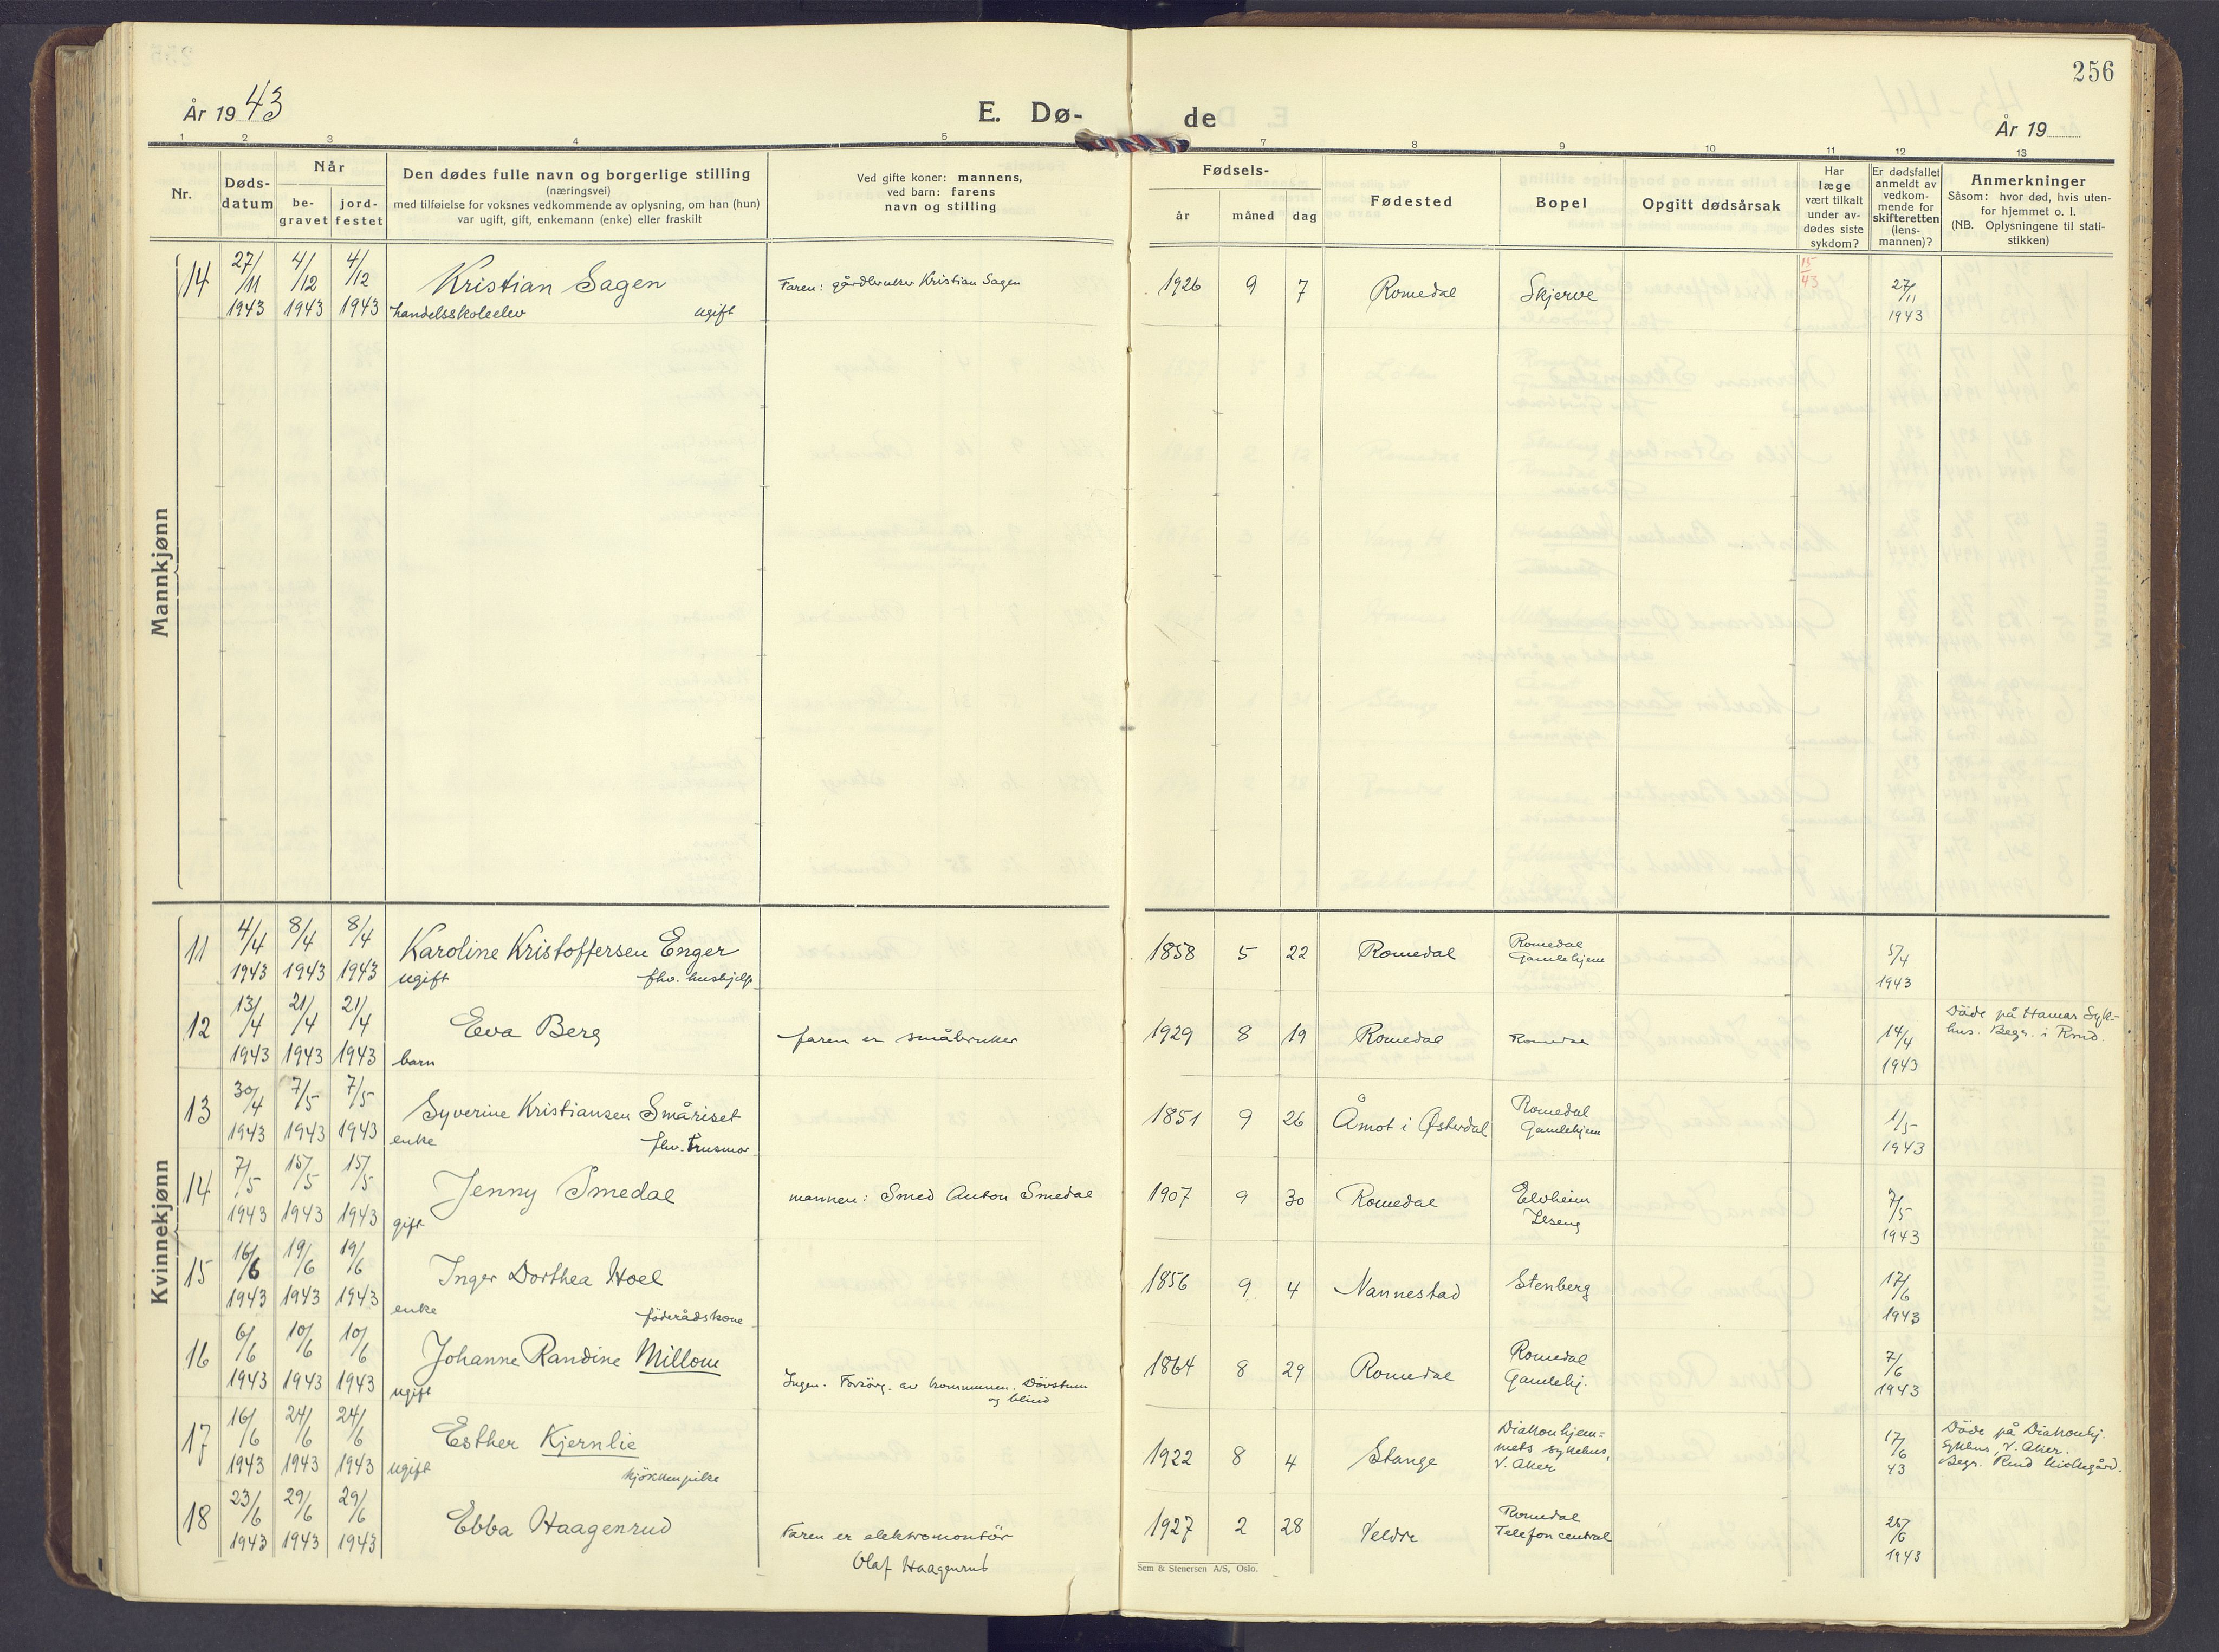 256
År 1943
E. Dø-
de
År 19
1 2 3 4 5 7 8 9 10 11 12 13
Nr.
Døds-
datum
Når
be-
gravet
jord-
festet
Den dødes fulle navn og borgerlige stilling
(næringsvei)
med tilføielse for voksnes vedkommende av oplysning, om han (hun)
var ugift, gift, enkemann (enke) eller fraskilt
Ved gifte koner: mannens,
ved barn: farens
navn og stilling
Fødsels-
år
måned
dag
Fødested
Bopel
Opgitt dødsårsak
Har
læge
vært tilkalt
under av-
dødes siste
sykdom?
Er dødsfallet
anmeldt av
vedkom-
mende for
skifteretten
(lens-
mannen)?
Anmerkninger
Såsom: hvor død, hvis uten-
for hjemmet o. l.
(NB. Oplysningene til stati-
stikken)
Mannkjønn
14 27/11 4/12 4/12 Kristian Sagen Faren: gårdbruker Kristian Sagen 1926 9 7 Romedal Skjerve 15/43 27/11
1943 1943 1943 handelsskoleelev ugift 1943
Kvinnekjønn
11 4/4 8/4 8/4 Karoline Kristoffersen Enger 1858 5 22 Romedal Romedal 5/4
1943 1943 1943 ugift fhv. hushjelp Gamlehjem 1943
12 13/4 21/4 21/4 Eva Berg faren er småbruker 1929 8 19 Romedal Romedal 14/4 Döde på Hamar Syk-
1943 1943 1943 barn 1943 hus. Begr. i Rmd.
13 30/4 7/5 7/5 Syverine Kristiansen Småriset 1851 9 26 Åmot i Østerdal Romedal 1/5
1943 1943 1943 enke fhv. husmor Gamlehjem 1943
14 7/5 15/5 15/5 Jenny Smedal mannen: Smed Anton Smedal 1907 9 30 Romedal Elvheim 7/5
1943 1943 1943 gift Ilseng 1943
15 16/6 19/6 19/6 Inger Dorthea Hoel 1856 9 4 Nannestad Stenberg 17/6
1943 1943 1943 enke föderådskone 1943
16 6/6 10/6 10/6 Johanne Randine Millom 1864 8 29 Romedal Romedal 7/6
1943 1943 1943 ugift Ingen. Forsörg. av kommunen. Dövstum Gamlehj. 1943
og blind
17 16/6 24/6 24/6 Esther Kjernlie 1922 8 4 Stange Diakonhjem= 17/6 Döde på Diakonhj.
1943 1943 1943 ugift kjökkenpike mets sykehus, 43 sykhus, V. Aker.
V. Aker Begr. Rmd kirkegård.
18 23/6 29/6 29/6 Ebba Haagenrud Faren er elektromontör 1927 2 28 Veldre Romedal 25/6
1943 1943 1943 Olaf Haagenrud Telefoncentral 1943
Sem & Stenersen A/S, Oslo.